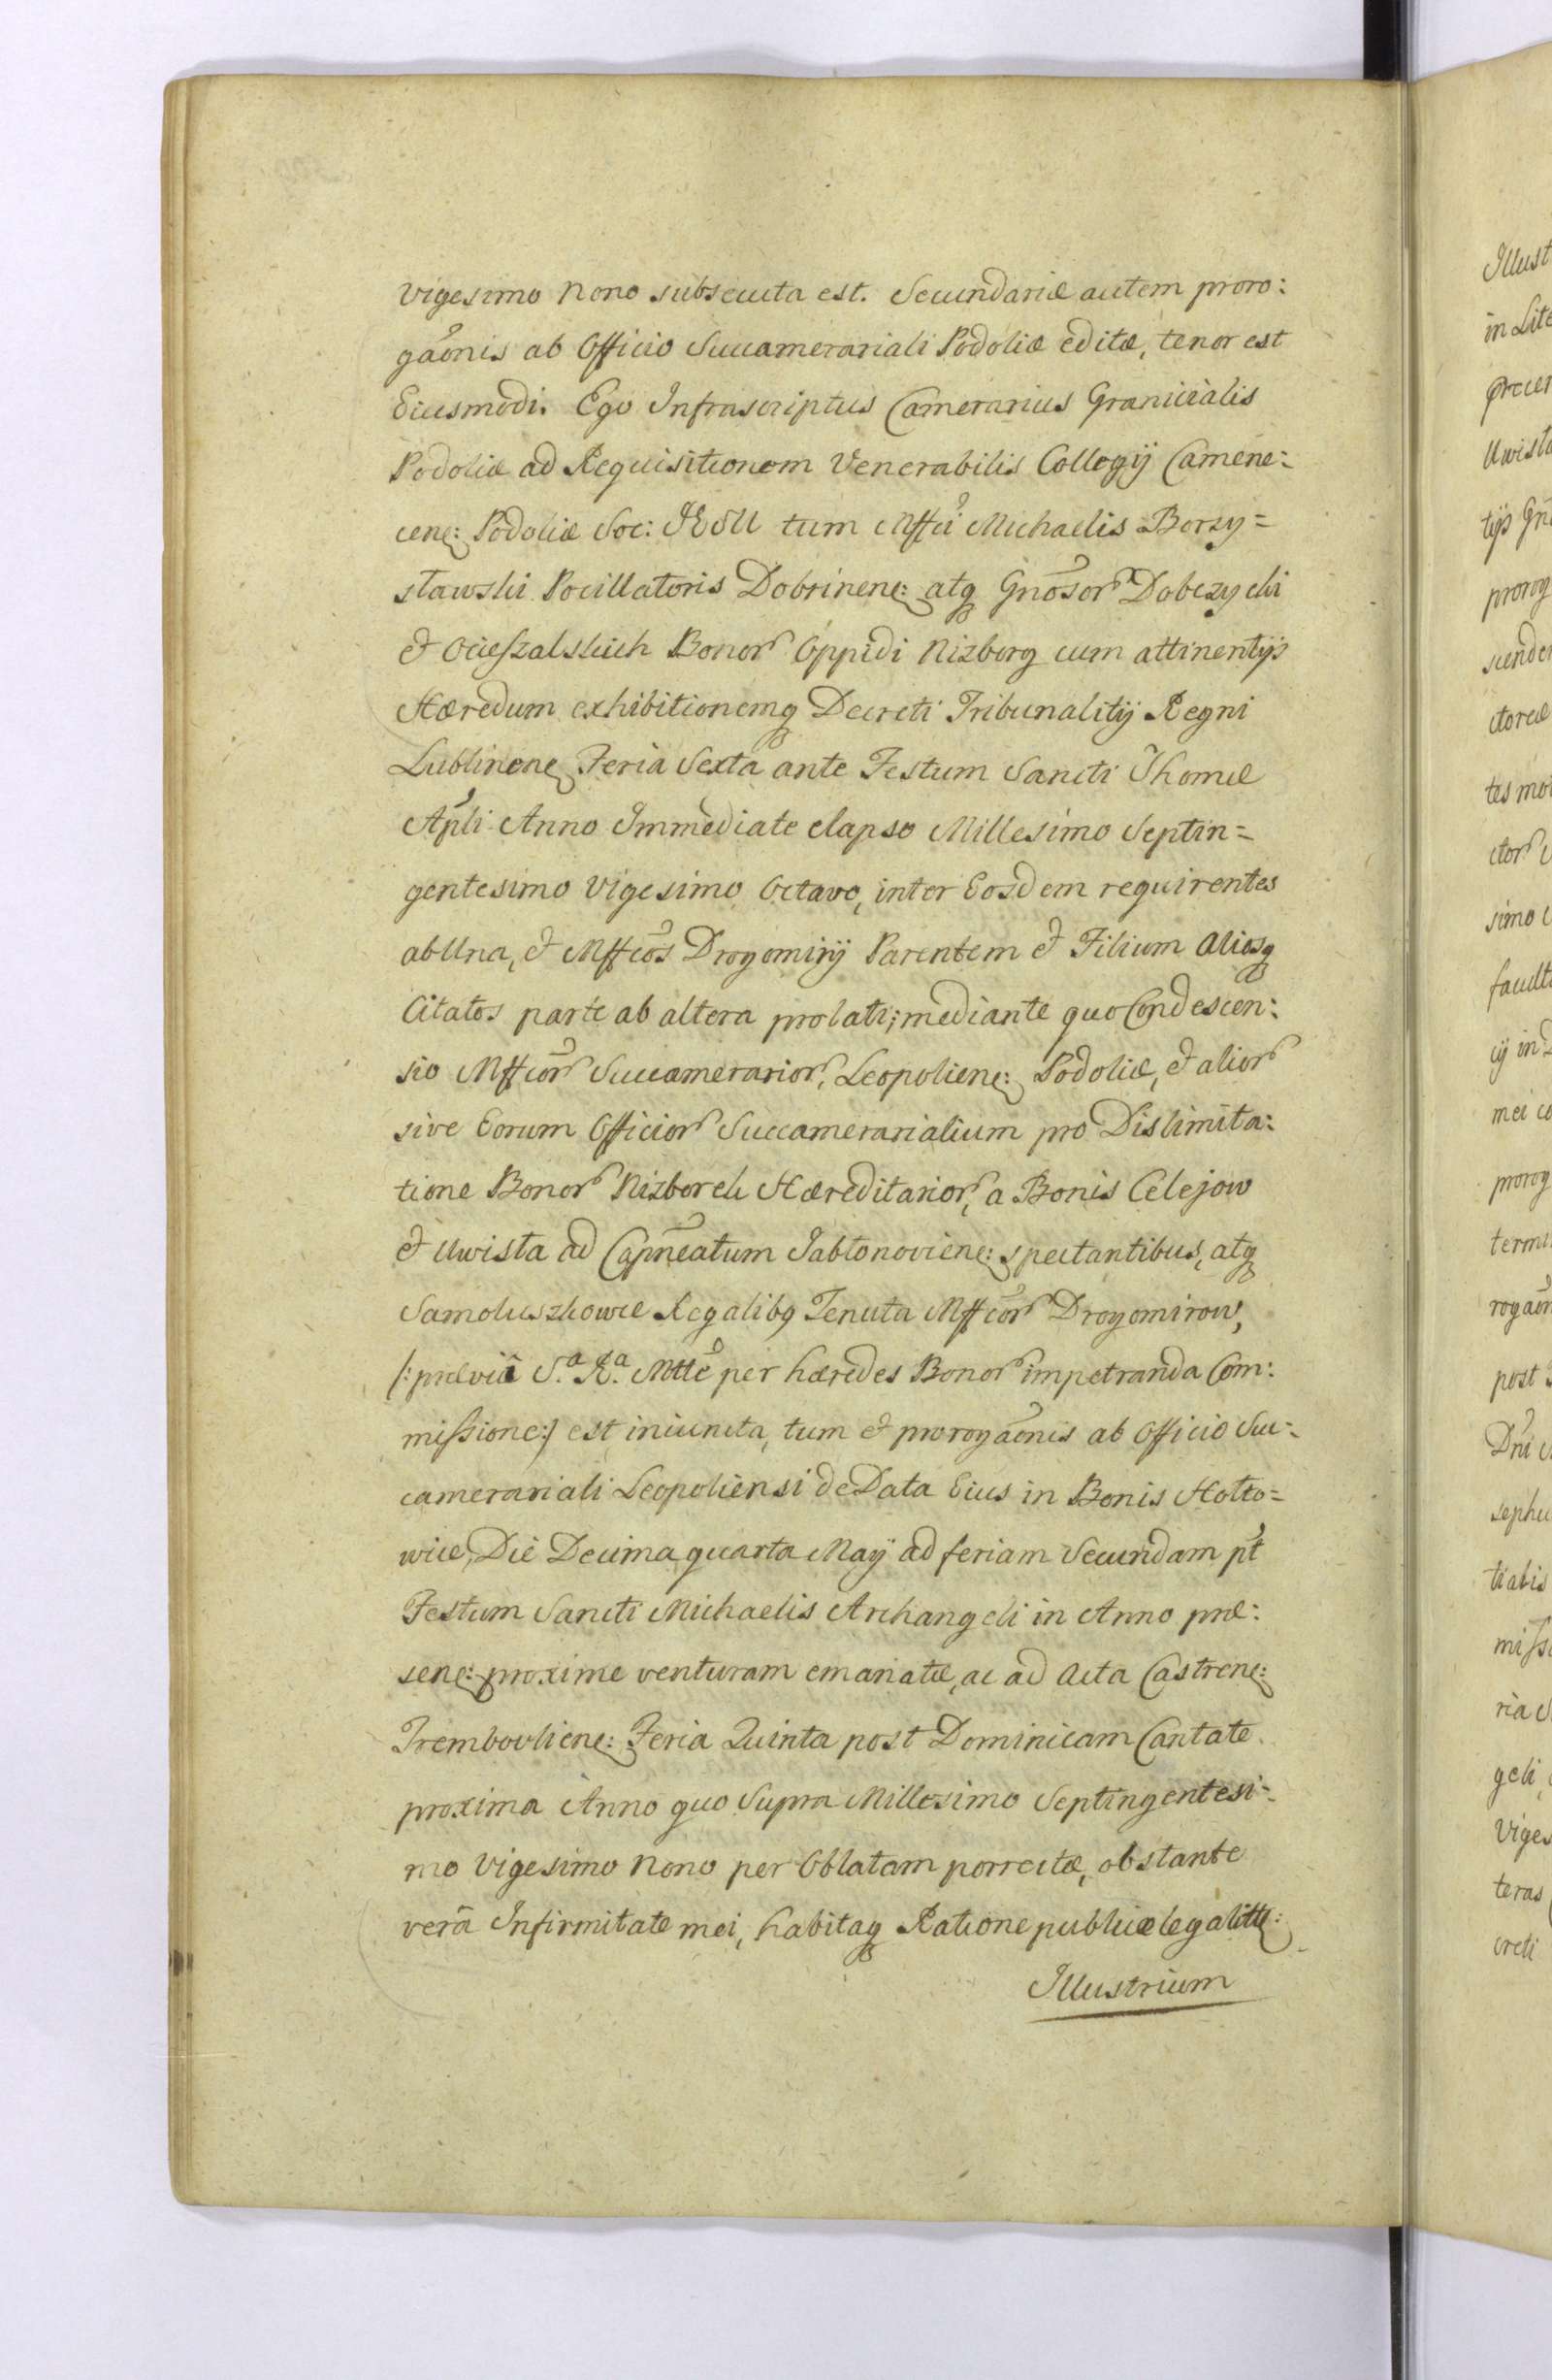 vigesimo nono subsecuta est. Secundariæ autem proro:
gãonis ab Officio Succamerariali Podoliæ editæ, tenor est
Eiusmodi. Ego Infrascriptus Camerarius Granicialis
Podoliæ ad Requisitionem Venerabilis Collegÿ Camene:
cenẽ: Podoliæ Soc: JESU tum Mffci Michaelis Borzy=
sławski Pocillatoris Dobrinenẽ: atq Gnõsor Dobczycki
& Ocieszalskich Bonor Oppidi Nizborg cum attinentÿs
Hæredum exhibitionemq Decreti Tribunalitÿ Regni
Lublinenẽ Feria Sexta ante Festum Sancti Thomæ
Apli Anno Immediate elapso Millesimo Septin=
gentesimo Vigesimo Octavo, inter Eosdem requirentes
ab Una, & Mffcos Drogomirÿ Parentem & Filium aliosq
Citatos parte ab altera prolati; mediante quo Condescen:
sio Mffcor Succamerarior, Leopolienẽ: Podoliæ, & alior
sive Eorum Officior Succamerarialium pro Dislimita:
tione Bonor Nizborch Hæreditarior, a Bonis Celejow
& Uwisła ad Capneatum Jabłonovienẽ: spectantibus, atq
Samoluszkowce Regalibq Tenuta Mffcor Drogomirow,
/: præviâ S.ª R.ª Mtte per hæredes Bonor impetranda Com:
missione :/ est iniuncta, tum & prorogãonis ab Officio Suc=
camerariali Leopoliensi de Data Eius in Bonis Hołto=
wice, Die Decima quarta Maÿ ad feriam Secundam pt
Festum Sancti Michaelis Archangeli in Anno præ:
senẽ: proxime venturam emanatæ, ac ad Acta Castrenẽ:
Trembovlienẽ: Feria Quinta post Dominicam Cantate
proxima Anno quo Supra Millesimo Septingentesi=
mo Vigesimo Nono per Oblatam porrectæ, obstante
verâ Infirmitate mei, habitaq Ratione publicæ legalitt:
Illustrium
Illust
in Lite
Uwisła
tÿs Gn
prorog
scende
ctoreæ
tes mo
ctor
simo
facult
cÿ in
mei co
prorog
termi
rogaõn
post
Dni
sephu
tialis
miss
ria S
geli,
Viges
teras
creti